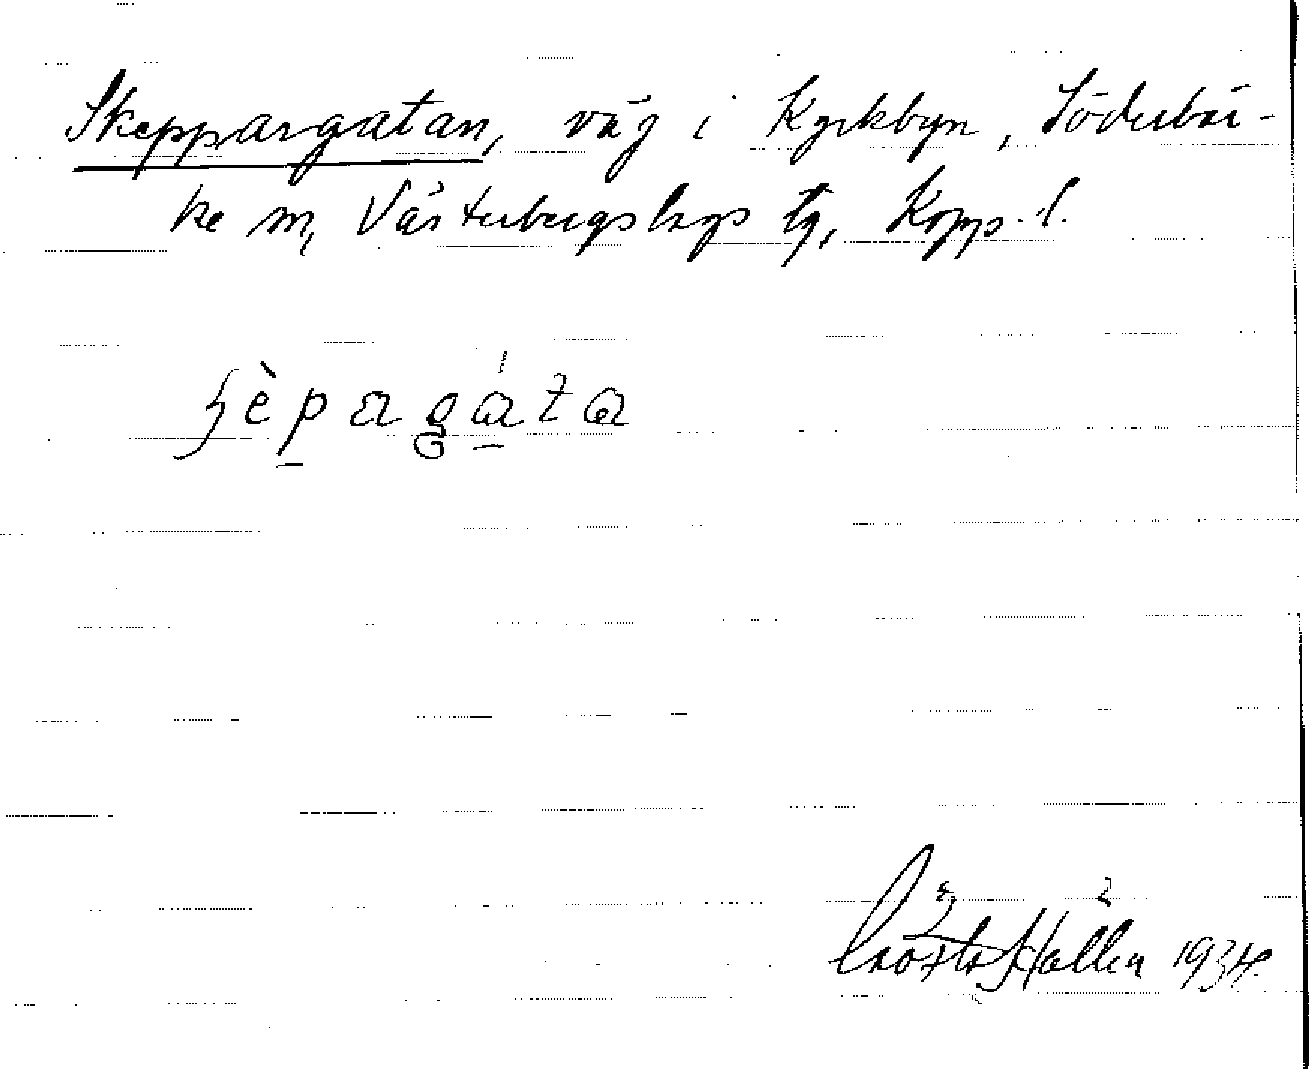 Skeppargatan, väg i Kyrkbyn, Söderbär-
ke sn, Västerbergslags tg, Kopp. l.
Gösta Hallén 1934.